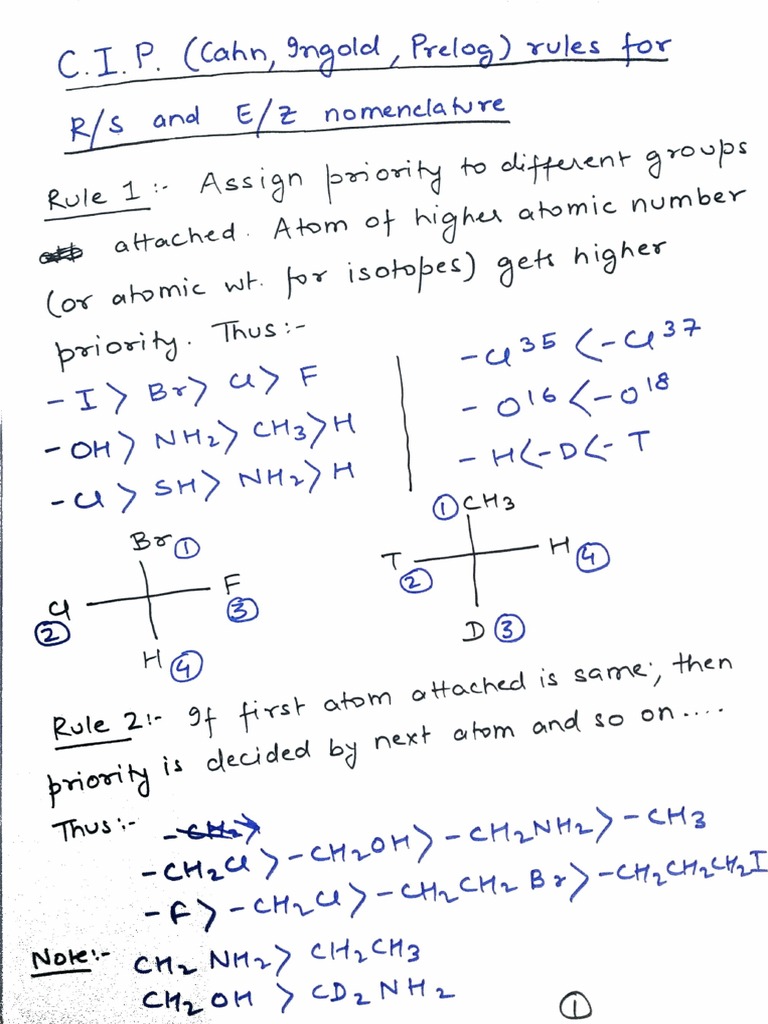 C.I.P. (Cahn, Ingold, Prelog) rules for
R/S and E/Z nomenclature
Rule 1 :- Assign priority to different groups
attached. Atom of higher atomic number
(or atomic wt. for isotopes) gets higher
priority. Thus :-
- I > Br > Cl > F
- OH > NH₂ > CH₃ > H
- Cl > SH > NH₂ > H
- Cl³⁵ < - Cl³⁷
- O¹⁶ < - O¹⁸
- H < - D < - T
Br ①
Cl ②
F ③
H ④
① CH₃
T ②
H ④
D ③
Rule 2 :- If first atom attached is same, then
priority is decided by next atom and so on....
Thus :-
- CH₂Cl > - CH₂OH > - CH₂NH₂ > - CH₃
- F > - CH₂Cl > - CH₂CH₂Br > - CH₂CH₂CH₂I
Note :- CH₂NH₂ > CH₂CH₃
CH₂OH > CD₂NH₂
①